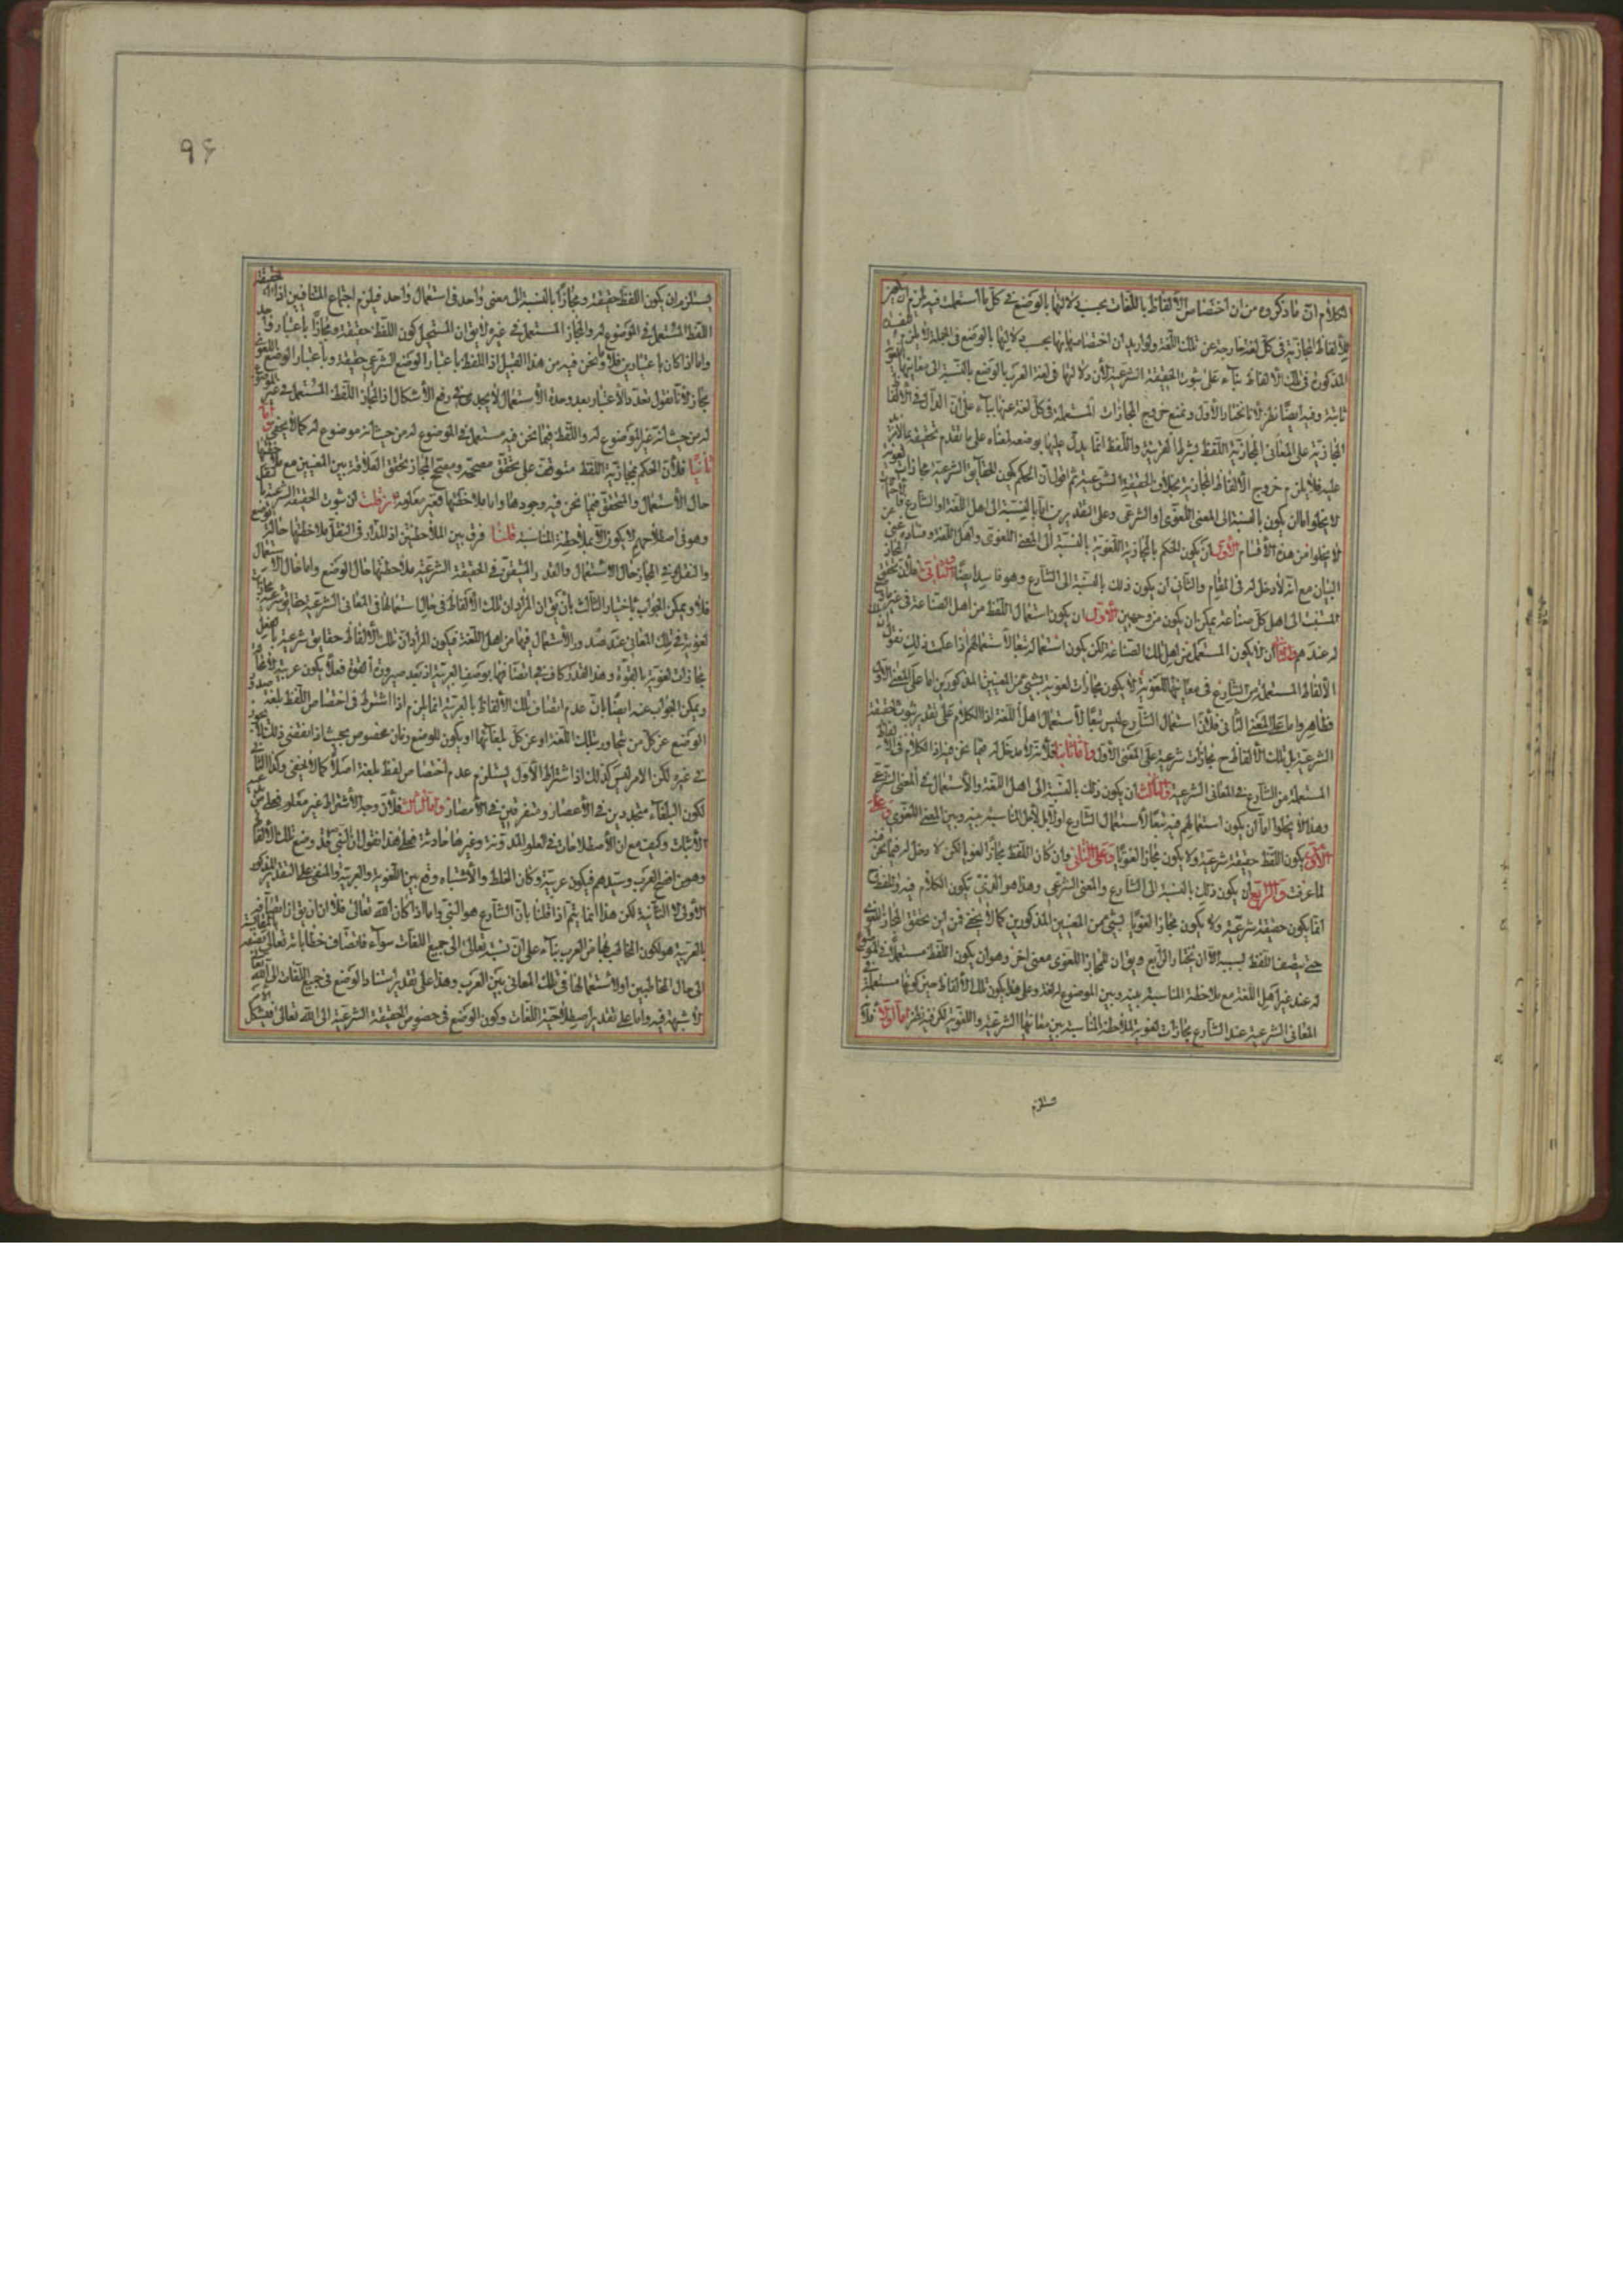 الكلام ان ما ذكروه من ان اختصاص الألفاظ باللغات بحسب دلالتها بالوضع في كل ما استعملت فيه لزم ان
الألفاظ المجازية في كل لغة خارجة عن تلك اللغة ولو اريد ان اختصاصها بها بحسب دلالتها بالوضع في الجملة لا يلزم
المذكورة في تلك الألفاظ بناء على ثبوت الحقيقة الشرعية لأن دلالتها في لغة العرب بالوضع بالنسبة الى معانيها اللغوية
ثابتة وفيه ايضا نظر لأنا نختار الأول ونمنع خروج المجازات المستعملة في كل لغة عنها بناء على ان الدال في الألفاظ
المجازية على المعاني المجازية اللفظ بشرط القرينة واللفظ انما يدل عليها بوضعه لمعناه على ما تقدم تحقيقه
عليه فلا يلزم خروج الألفاظ المجازية بخلاف الحقيقة الشرعية ثم اقول ان الحكم بكون الحقايق الشرعية مجازات لغوية
لا يخلوا اما ان يكون بالنسبة الى المعنى اللغوى او الشرعى وعلى التقديرين اما بالنسبة الى اهل اللغة او الشارع
لا يخلوا من هذه الأقسام الأول ان يكون الحكم بالمجازية اللغوية بالنسبة الى المعنى اللغوى واهل اللغة وفساده غني عن
البيان مع انه لا دخل له في المقام والثاني ان يكون ذلك بالنسبة الى الشارع وهو فاسد ايضا
المنتسب الى اهل كل صناعة يمكن ان يكون من وجهين الأول ان يكون استعمال اللفظ من اهل الصناعة في غير
له عندهم والثاني ان لا يكون المستعمل من اهل تلك الصناعة لكن يكون استعماله تبعا لاستعمالهم اذا علمت ذلك نقول
الألفاظ المستعملة من الشارع في معانيها اللغوية لا يكون مجازات لغوية بشيء من المعنيين المذكورين اما على المعنى الأول
فظاهر واما على المعنى الثاني فلان استعمال الشارع ليس تبعا لاستعمال اهل اللغة اذ الكلام على تقدير ثبوت الحقيقة
الشرعية بل تلك الألفاظ ح مجازات شرعية على المعنى الأول واما ثانيا فلأنه لا مدخل له فيما نحن فيه اذ الكلام في الألفاظ
المستعملة من الشارع في المعاني الشرعية والثالث ان يكون ذلك بالنسبة الى اهل اللغة والاستعمال في المعنى الشرعي
وهذا لا يخلوا اما ان يكون استعمالهم فيه تبعا لاستعمال الشارع اولا بل لأجل المناسبة بينه وبين المعنى اللغوي وعلى
الأول يكون اللفظ حقيقة شرعية ولا يكون مجازا لغويا وعلى الثاني وان كان اللفظ مجازا لغويا لكن لا دخل له فيما نحن فيه
لما عرفت والرابع ان يكون ذلك بالنسبة الى الشارع والمعنى الشرعي وهذا هو الذي يكون الكلام فيه واللفظ ح
انما يكون حقيقة شرعية ولا يكون مجازا لغويا بشيء من المعنيين المذكورين كما لا يخفى فمن اين تحقق المجاز اللغوي
حتى يتصف اللفظ بسببه الا ان نختار الرابع ويق ان للمجاز اللغوى معنى اخر وهو ان يكون اللفظ مستعملا في الموضوع
له عند غير اهل اللغة مع ملاحظة المناسبة بينه وبين الموضوع له لغة وعلى هذا يكون تلك الألفاظ حين كونها مستعملة في
المعاني الشرعية عند الشارع مجازات لغوية لملاحظة المناسبة بين معانيها الشرعية واللغوية لكن فيه نظر اما اولا فلانه
يستلزم
٩۶
يستلزم ان يكون اللفظ حقيقة ومجازا بالنسبة الى معنى واحد في استعمال واحد فيلزم اجتماع المتنافيين اذ الحقيقة
اللفظ المستعمل في الموضوع له والمجاز المستعمل في غيره لا يق ان المستحيل كون اللفظ حقيقة ومجازا باعتبار واحد
واما اذا كان باعتبارين فلا وما نحن فيه من هذا القبيل اذ اللفظ باعتبار الوضع الشرعي حقيقة وباعتبار الوضع اللغوي
مجاز لأنا نقول تعدد الاعتبار بعد وحدة الاستعمال لا يجدى في رفع الأشكال اذ المجاز اللفظ المستعمل في غير الموضوع
له من حيث انه غير الموضوع له واللفظ فيما نحن فيه مستعمل في الموضوع له من حيث انه موضوع له كما لا يخفى واما
ثانيا فلأن الحكم بمجازية اللفظ متوقف على تحقق مصححه ومصحح المجاز تحقق العلاقة بين المعنيين مع ملاحظتها
حال الأستعمال والمتحقق فيما نحن فيه وجودها واما ملاحظتها فغير معلومة فان قلت ان ثبوت الحقيقة الشرعية بالنقل
وهو في اصطلاحهم لا يكون الا بملاحظة المناسبة قلنا فرق بين الملاحظتين اذ المدار في النقل ملاحظتها حالة الوضع
والنقل وفي المجاز حال الاستعمال والقدر المتيقن في الحقيقة الشرعية ملاحظتها حال الوضع واما حال الاستعمال
فلا ويمكن الجواب باختيار الثالث بان يق ان المراد ان تلك الألفاظ في حال استعمالها في المعاني الشرعية حقايق شرعية مجازات
لغوية في تلك المعاني عند صدور الأستعمال فيها من اهل اللغة فيكون المراد ان تلك الألفاظ حقايق شرعية بالفعل
مجازات لغوية بالقوة وهذا القدر كاف في اتصافها بوصف العربية اذ بعد صيرورة القوة فعلا يكون عربية لا محالة
ويمكن الجواب عنه ايضا بان عدم اتصاف تلك الألفاظ بالعربية انما يلزم اذا اشترط في اختصاص اللفظ بلغة صدور
الوضع عن كل من تحاور بتلك اللغة او عن كل بلغائها او يكون للوضع زمان مخصوص بحيث اذا انقضى ذلك لا يجوز
في غيره لكن الامر ليس كذلك اذ اشتراط الأول يستلزم عدم اختصاص لفظ بلغة اصلا كما لا يخفى وكذا الثاني
لكون البلغاء متجددين في الأعصار ومتفرقين في الأمصار واما الثالث فلأن وجه الأشتراط غير معلوم فعلى مدعيه
الأثبات وكيف مع ان الأصطلاحات في العلوم المدونة وغيرها حادثة فعلى هذا نقول ان النبي ص قد وضع تلك الألفاظ
وهو من افصح العرب وسيدهم فيكون عربية وكان الغلط والأشتباه وقع بين اللغوية والعربية والمنفي على التقدير المذكور
الأولى لا الثانية لكن هذا انما يتم اذا قلنا بان الشارع هو النبي واما اذا كان الله تعالى فلا الا ان يق ان اتصافه
بالعربية هو لكون المخاطب بها من العرب بناء على ان نسبته تعالى الى جميع اللغات سواء فاتصاف خطاباته تعالى
الى حال المخاطبين او لاستعمالها في تلك المعاني بين العرب وهذا على تقدير استناد الوضع في جميع اللغات الى الله تعالى
لا شبهة فيه واما على تقدير اصطلاحية اللغات وكون الوضع في خصوص الحقيقة الشرعية الى الله تعالى فمشكل